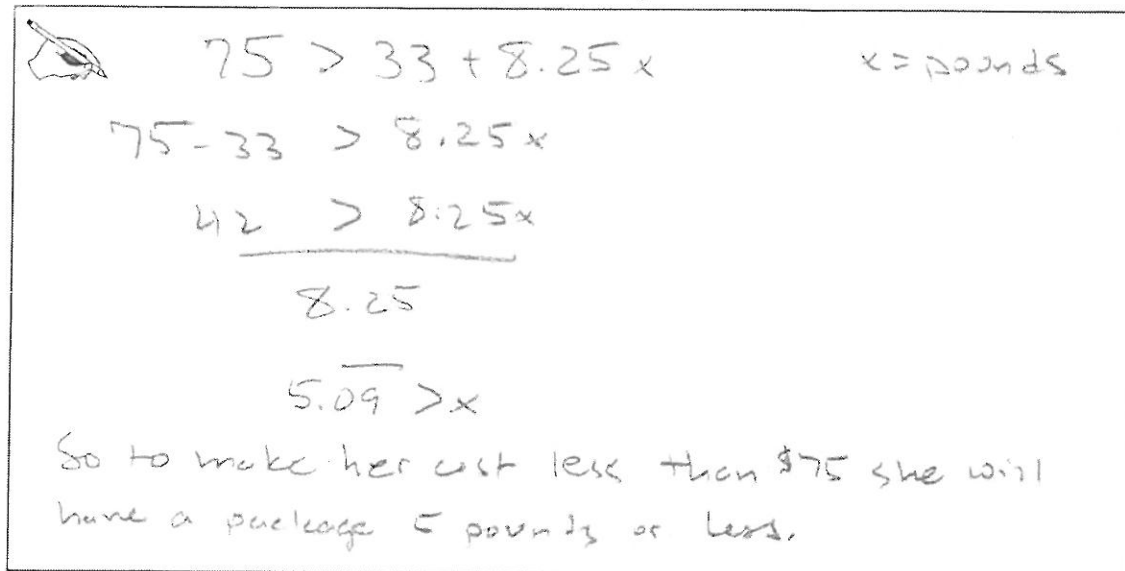 75 > 33 + 8.25x x = pounds
75 - 33 > 8.25x
42 > 8.25x
8.25
5.0̅9̅ > x
So to make her cost less than $75 she will
have a package 5 pounds or less.